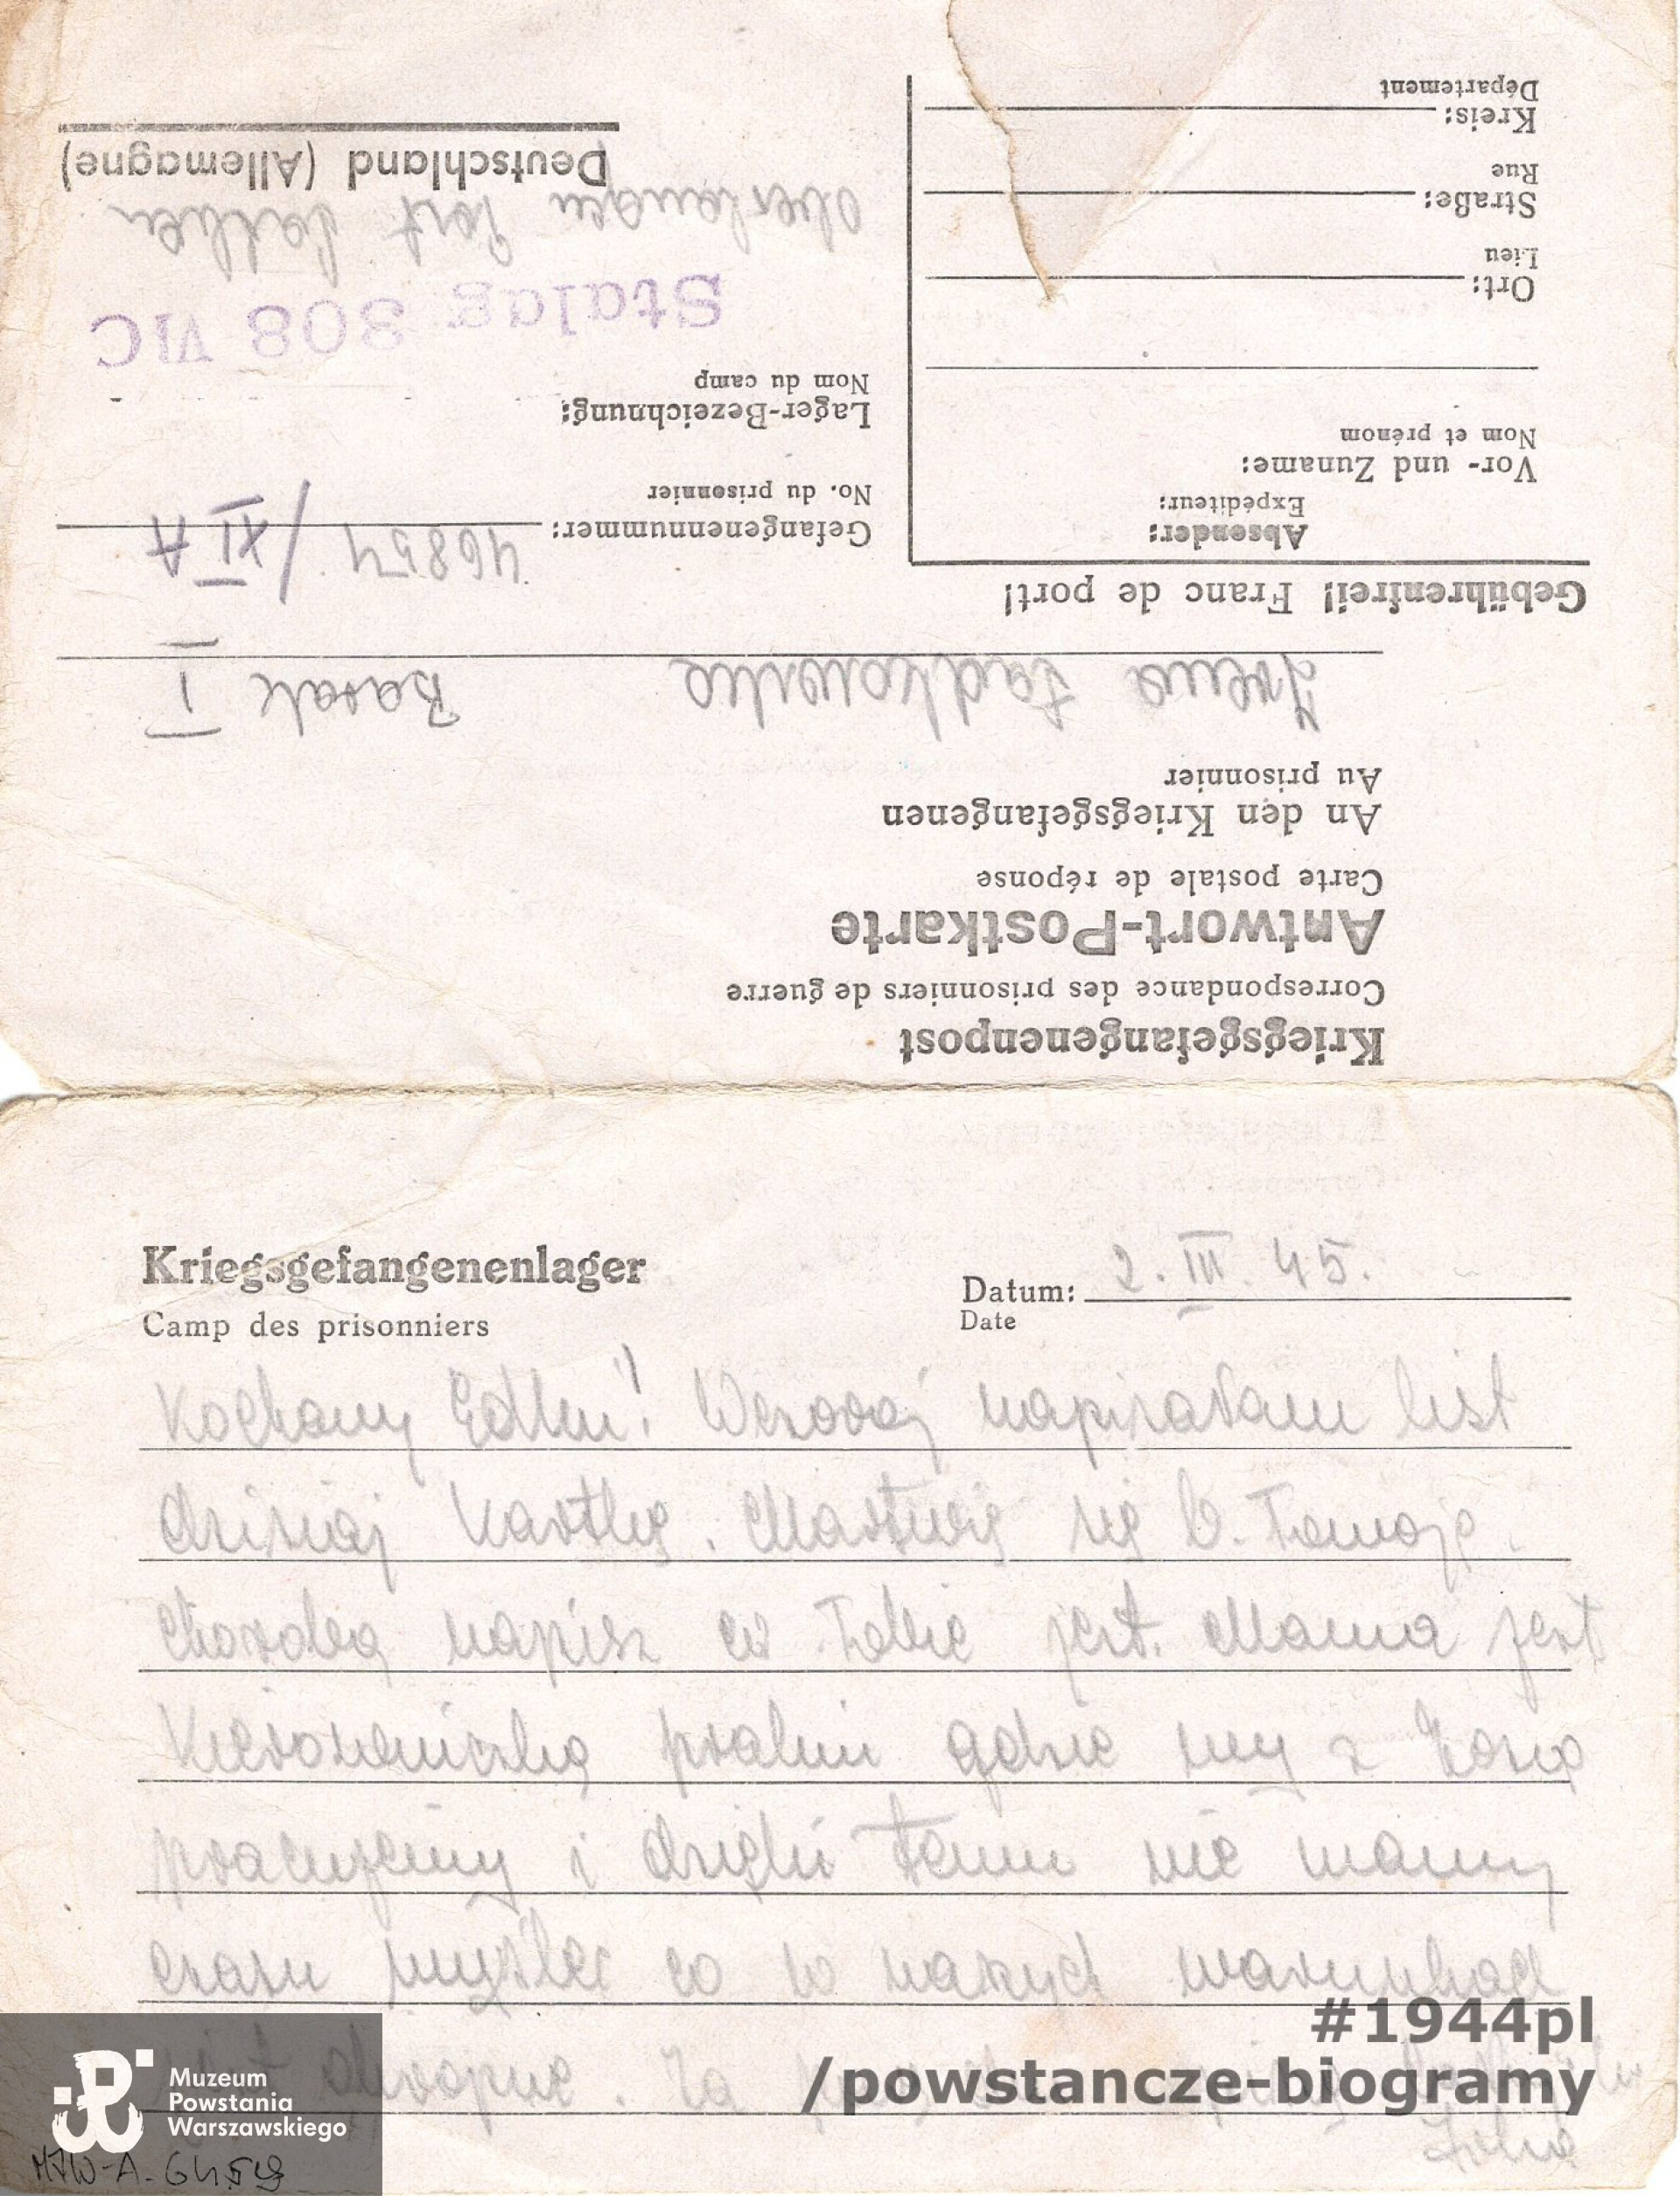 Kriegsgefangenenpost
Correspondance des prisonniers de guerre
Antwort-Postkarte
Carte postale de réponse
An den Kriegsgefangenen
Au prisonnier
Irena Barak I
Gebührenfrei! Franc de port!
Absender:
Expéditeur:
Vor- und Zuname:
Nom et prénom
Ort:
Lieu
Straße:
Rue
Kreis:
Département
Gefangenennummer: 46857 / XI A
No. du prisonnier
Lager-Bezeichnung:
Nom du camp
Stalag 308 VI C
Oberlangen Post Lathen
Deutschland (Allemagne)
Kriegsgefangenenlager
Camp des prisonniers
Datum: 2. III. 45.
Date
Kochany Wczoraj napisałam list
dzisiaj kartkę. Martwię się b. Twoją
chorobą napisz co Tobie jest. Mama jest
kierowniczką pralni gdzie my z
pracujemy i dzięki temu nie mamy
czasu myśleć co w naszych warunkach
okropne. Za
#1944pl
/powstancze-biogramy
Muzeum
Powstania
Warszawskiego